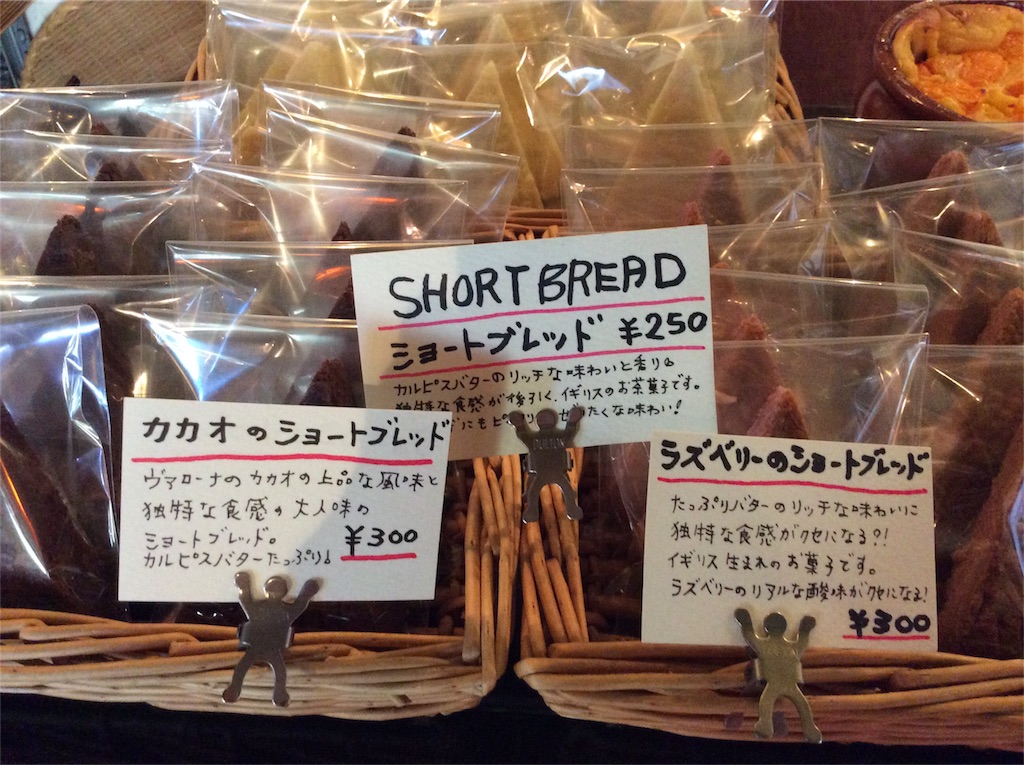 SHORTBREAD
ショートブレッド ¥250
カルピスバターのリッチな味わいと香り♪
独特な食感が後引く、イギリスのお茶菓子です。
にもピ たくな味わい!
DULTON
カカオのショートブレッド
ヴァローナのカカオの上品な風味と
独特な食感の大人味の
ショートブレッド。
カルピスバターたっぷり♪
¥300
ラズベリーのショートブレッド
たっぷりバターのリッチな味わいに
独特な食感がクセになる?!
イギリス生まれのお菓子です。
ラズベリーのリアルな酸味がクセになる!
¥300